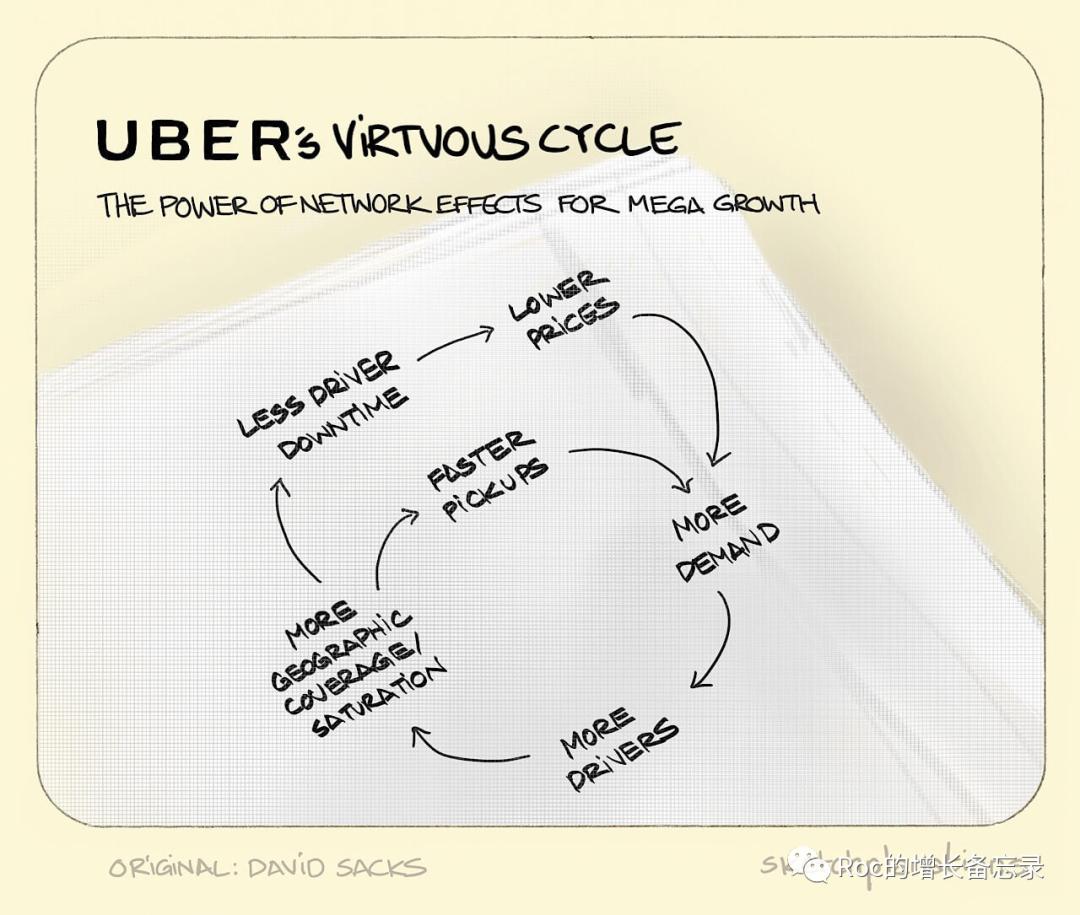 UBER's VIRTUOUS CYCLE
THE POWER OF NETWORK EFFECTS FOR MEGA GROWTH
LOWER
PRICES
LESS DRIVER
DOWNTIME
FASTER
PICKUPS
MORE
DEMAND
MORE
GEOGRAPHIC
COVERAGE/
SATURATION
MORE
DRIVERS
ORIGINAL: DAVID SACKS
Roc的增长备忘录